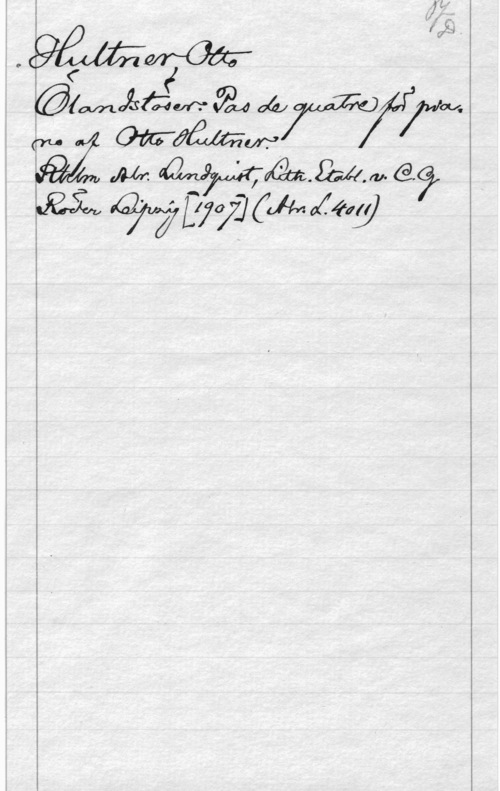 Hultner, Otto
Ölandstöser: Pas de quatre för pia-
no af Otto Hultner.
Sthlm Abr. Lundquist, Lith. Etabl. v. C. G.
Röder Leipzig [1907] (Abr. L. 4011)